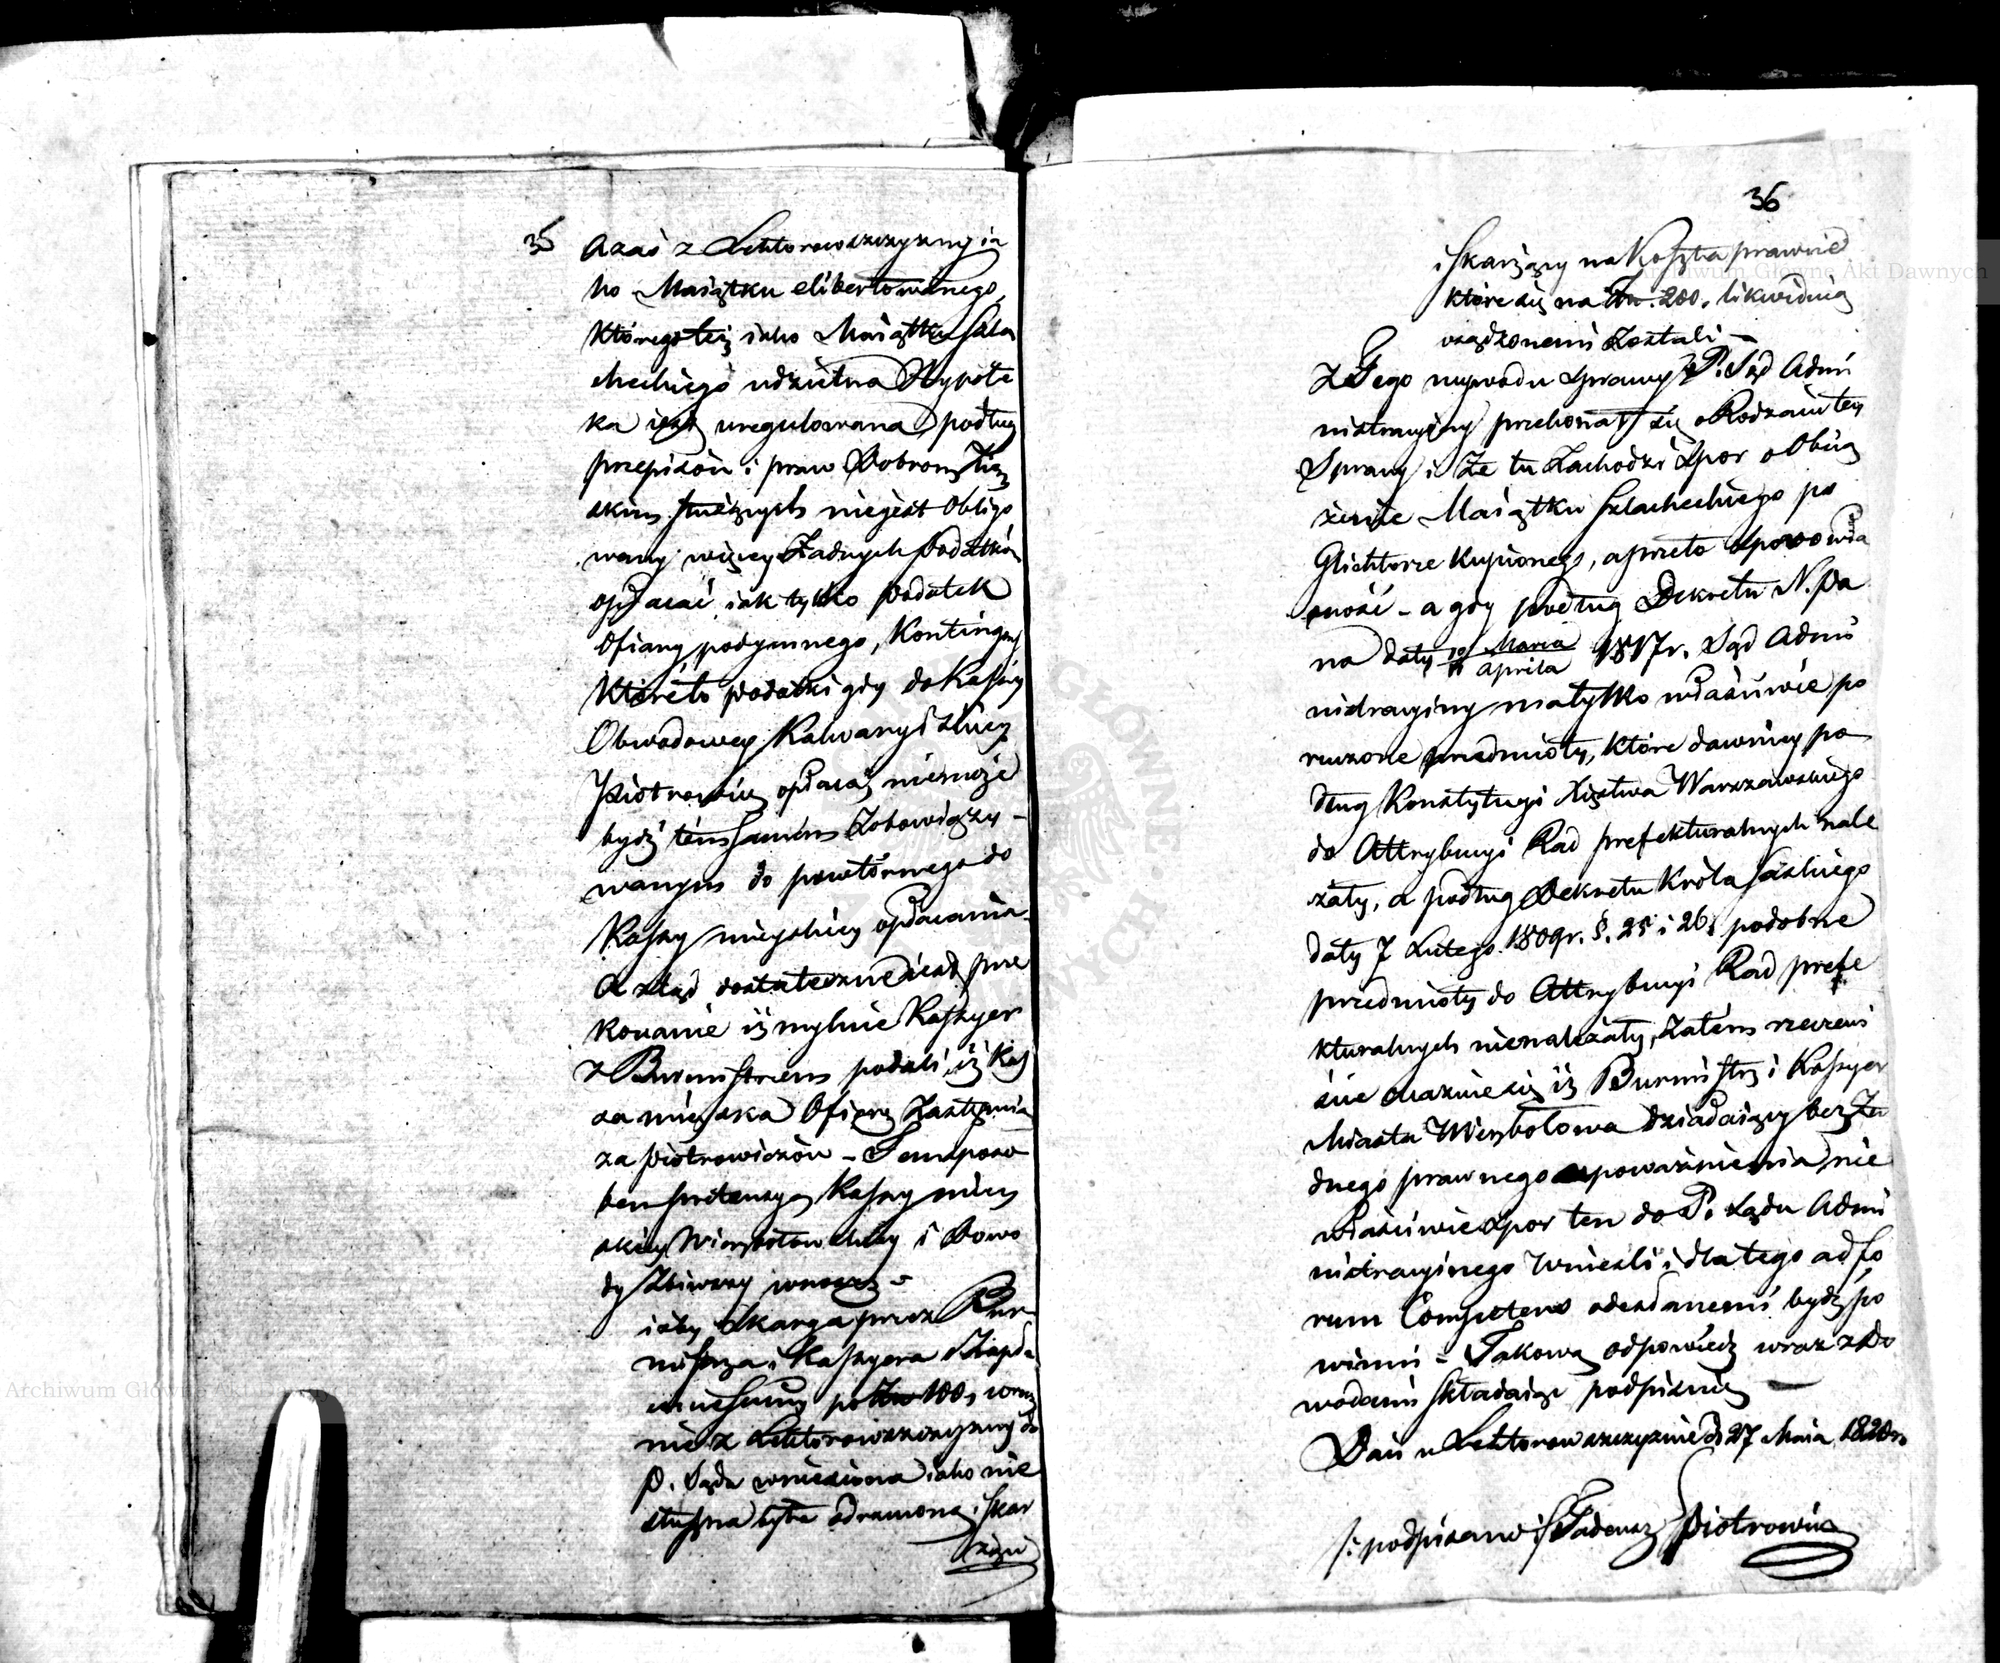 35
Azaś z Lektorowszczyzny ia
ko Maiątku elibertowanego
któregoteż iako Maiątku szla
checkiego udzielna Hypote
ka iest uregulowana, podług
przepisów i praw Dobrom
służących nieiest obligo
wany więcey Żadnych podatków
opłacać iak tylko podatek
Ofiary podymnego, Kontingens
któreto podatki gdy do Kassy
Obwodowey Kalwaryiskiey
Piotrowicz opłaca, niemoże
bydź témsamém zobowiązy-
wanym do powtórnego do
Kassy mieyskiey opłacania.
A ztąd dostateczne iest prze
konanie iż mylnie Kassyer
z Burmistrzem podali, iż Kas
sa mieyska Ofiarę zastępuie
za Piotrowiczów - Tem sposo
bem pretensyą Kassy miey
skiey Wierzbołowskiey i Dowo
dy zbiwszy wnoszę -
iżby skarga przez Bur-
mistrza i Kassyera
po Zł. 100, rocz
nie z Lektorowszczyzny do
P. Sądu wniesiona iako nie
słuszna była odrzucona, i skar
żący
36
i skarżący na Koszta prawne
które się na Zł. 200. likwiduią
osądzonemi zostali -
Z Tego wywodu sprawy P. Sąd Admi
nistracyiny przekonał się o Rodzaiu tey
Sprawy i Że tu Zachodzi Spor o Obcią
żenie Maiątku Szlacheckiego po
Glichtorze kupionego, a przeto Spor o wła
sność - a gdy podług Dekretu N. Pa
na daty 30 Marca / 11 Aprila 1817 r. Sąd Admi
nistracyiny ma tylko właściwie po
ruczone przedmioty, które dawniey po
dług Konstytucyi Xięstwa Warszawskiego
do Attrybucyi Rad prefekturalnych nale
żały, a podług Dekretu Króla Saskiego
daty 7 Lutego 1809 r. §. 25 i 26. podobne
przedmioty do Attrybucyi Rad prefe
kturalnych nienależały, zatém rzeczewi
ście okazuie się iż Burmistrz i Kassyer
Miasta Wierzbołowa działaiący bez ża
dnego prawnego upoważnienia, nie
właściwie spor ten do P. Sądu Admi
nistracyinego wnieśli i dla tego ad fo
rum Competens odesłanemi bydź po
winni - Takową odpowiedź wraz z Do
wodami składaiąc podpisuię -
Dan w Lektorowszczyznie d. 27 Maia 1820 r.
/: podpisano :/ Tadeusz Piotrowicz
Archiwum Główne Akt Dawnych
Archiwum Główne Akt Dawnych